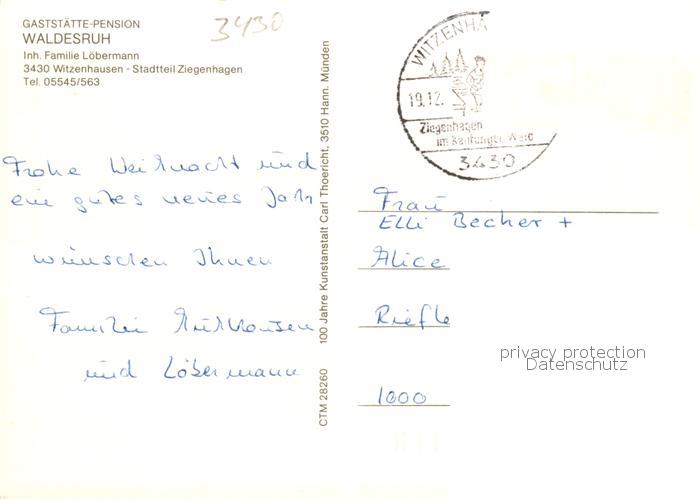 GASTSTÄTTE-PENSION
WALDESRUH
Inh. Familie Löbermann
3430 Witzenhausen - Stadtteil Ziegenhagen
Tel. 05545/563
3430
Frohe Weihnacht und
ein gutes neues Jahr
wünschen Ihnen
Familie
und Löbermann
CTM 28260 100 Jahre Kunstanstalt Carl Thoericht, 3510 Hann. Münden
WITZENHA
19.12.
Ziegenhagen
im Kaufunger Wald
3430
Frau
Elli Becher +
Alice
Riefle
1000
privacy protection
Datenschutz